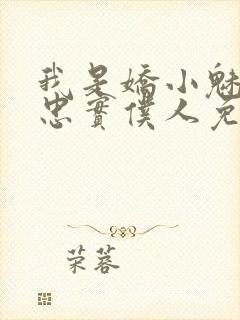 我是嬌小魅
忠實僕人免
荣蓉